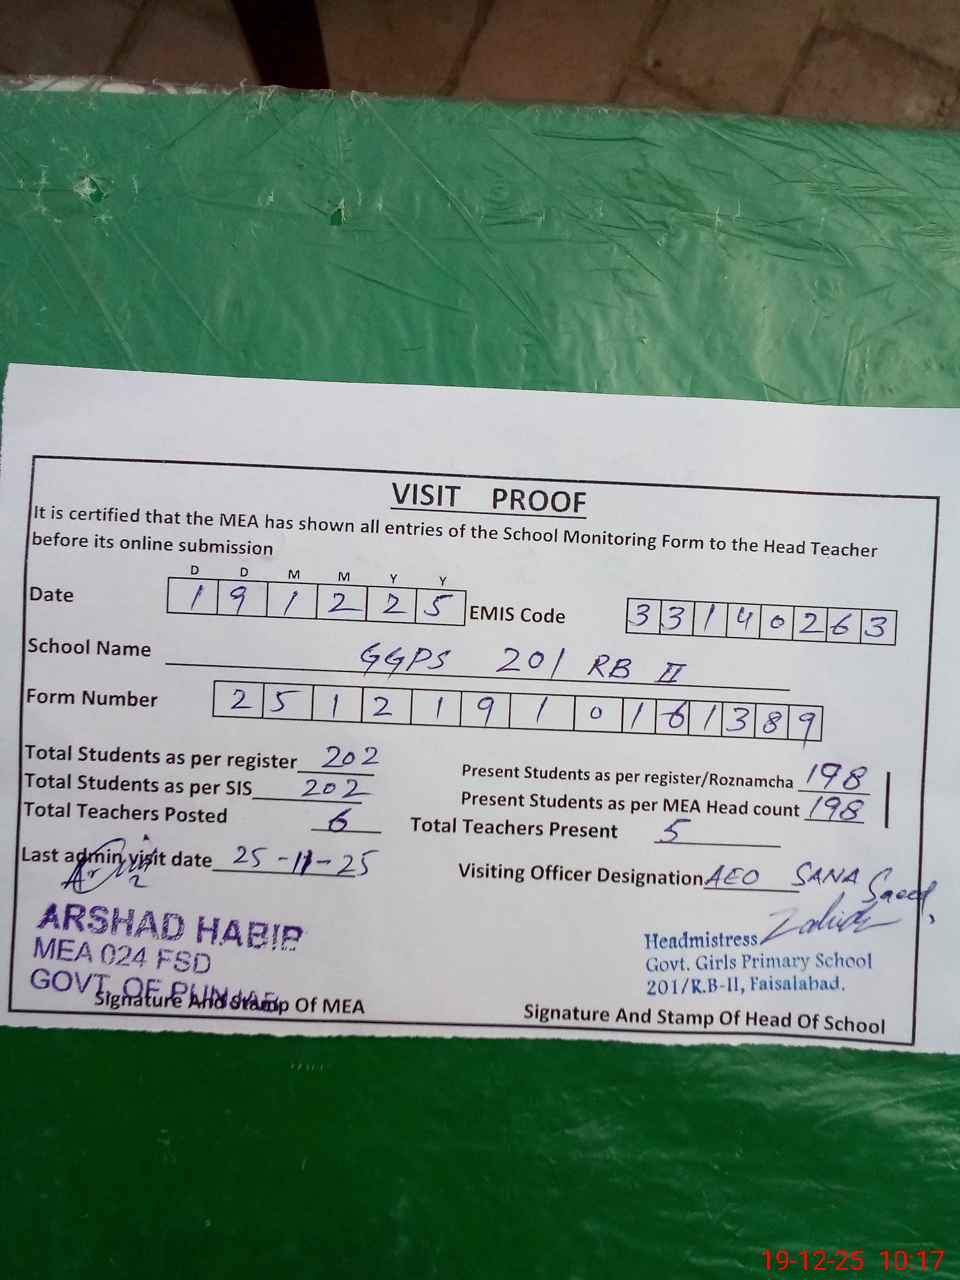 VISIT PROOF
It is certified that the MEA has shown all entries of the School Monitoring Form to the Head Teacher
before its online submission
D D M M Y Y
Date 1 9 1 2 2 5 EMIS Code 3 3 1 4 0 2 6 3
School Name GGPS 201 RB II
Form Number 2 5 1 2 1 9 1 0 1 6 1 3 8 9
Total Students as per register 202 Present Students as per register/Roznamcha 198
Total Students as per SIS 202 Present Students as per MEA Head count 198
Total Teachers Posted 6 Total Teachers Present 5
Last admin visit date 25-11-25 Visiting Officer Designation AEO SANA Saeed
ARSHAD HABIB
MEA 024 FSD
GOVT. OF PUNJAB
Headmistress
Govt. Girls Primary School
201/R.B-II, Faisalabad.
Signature And Stamp Of MEA Signature And Stamp Of Head Of School
19-12-25 10:17